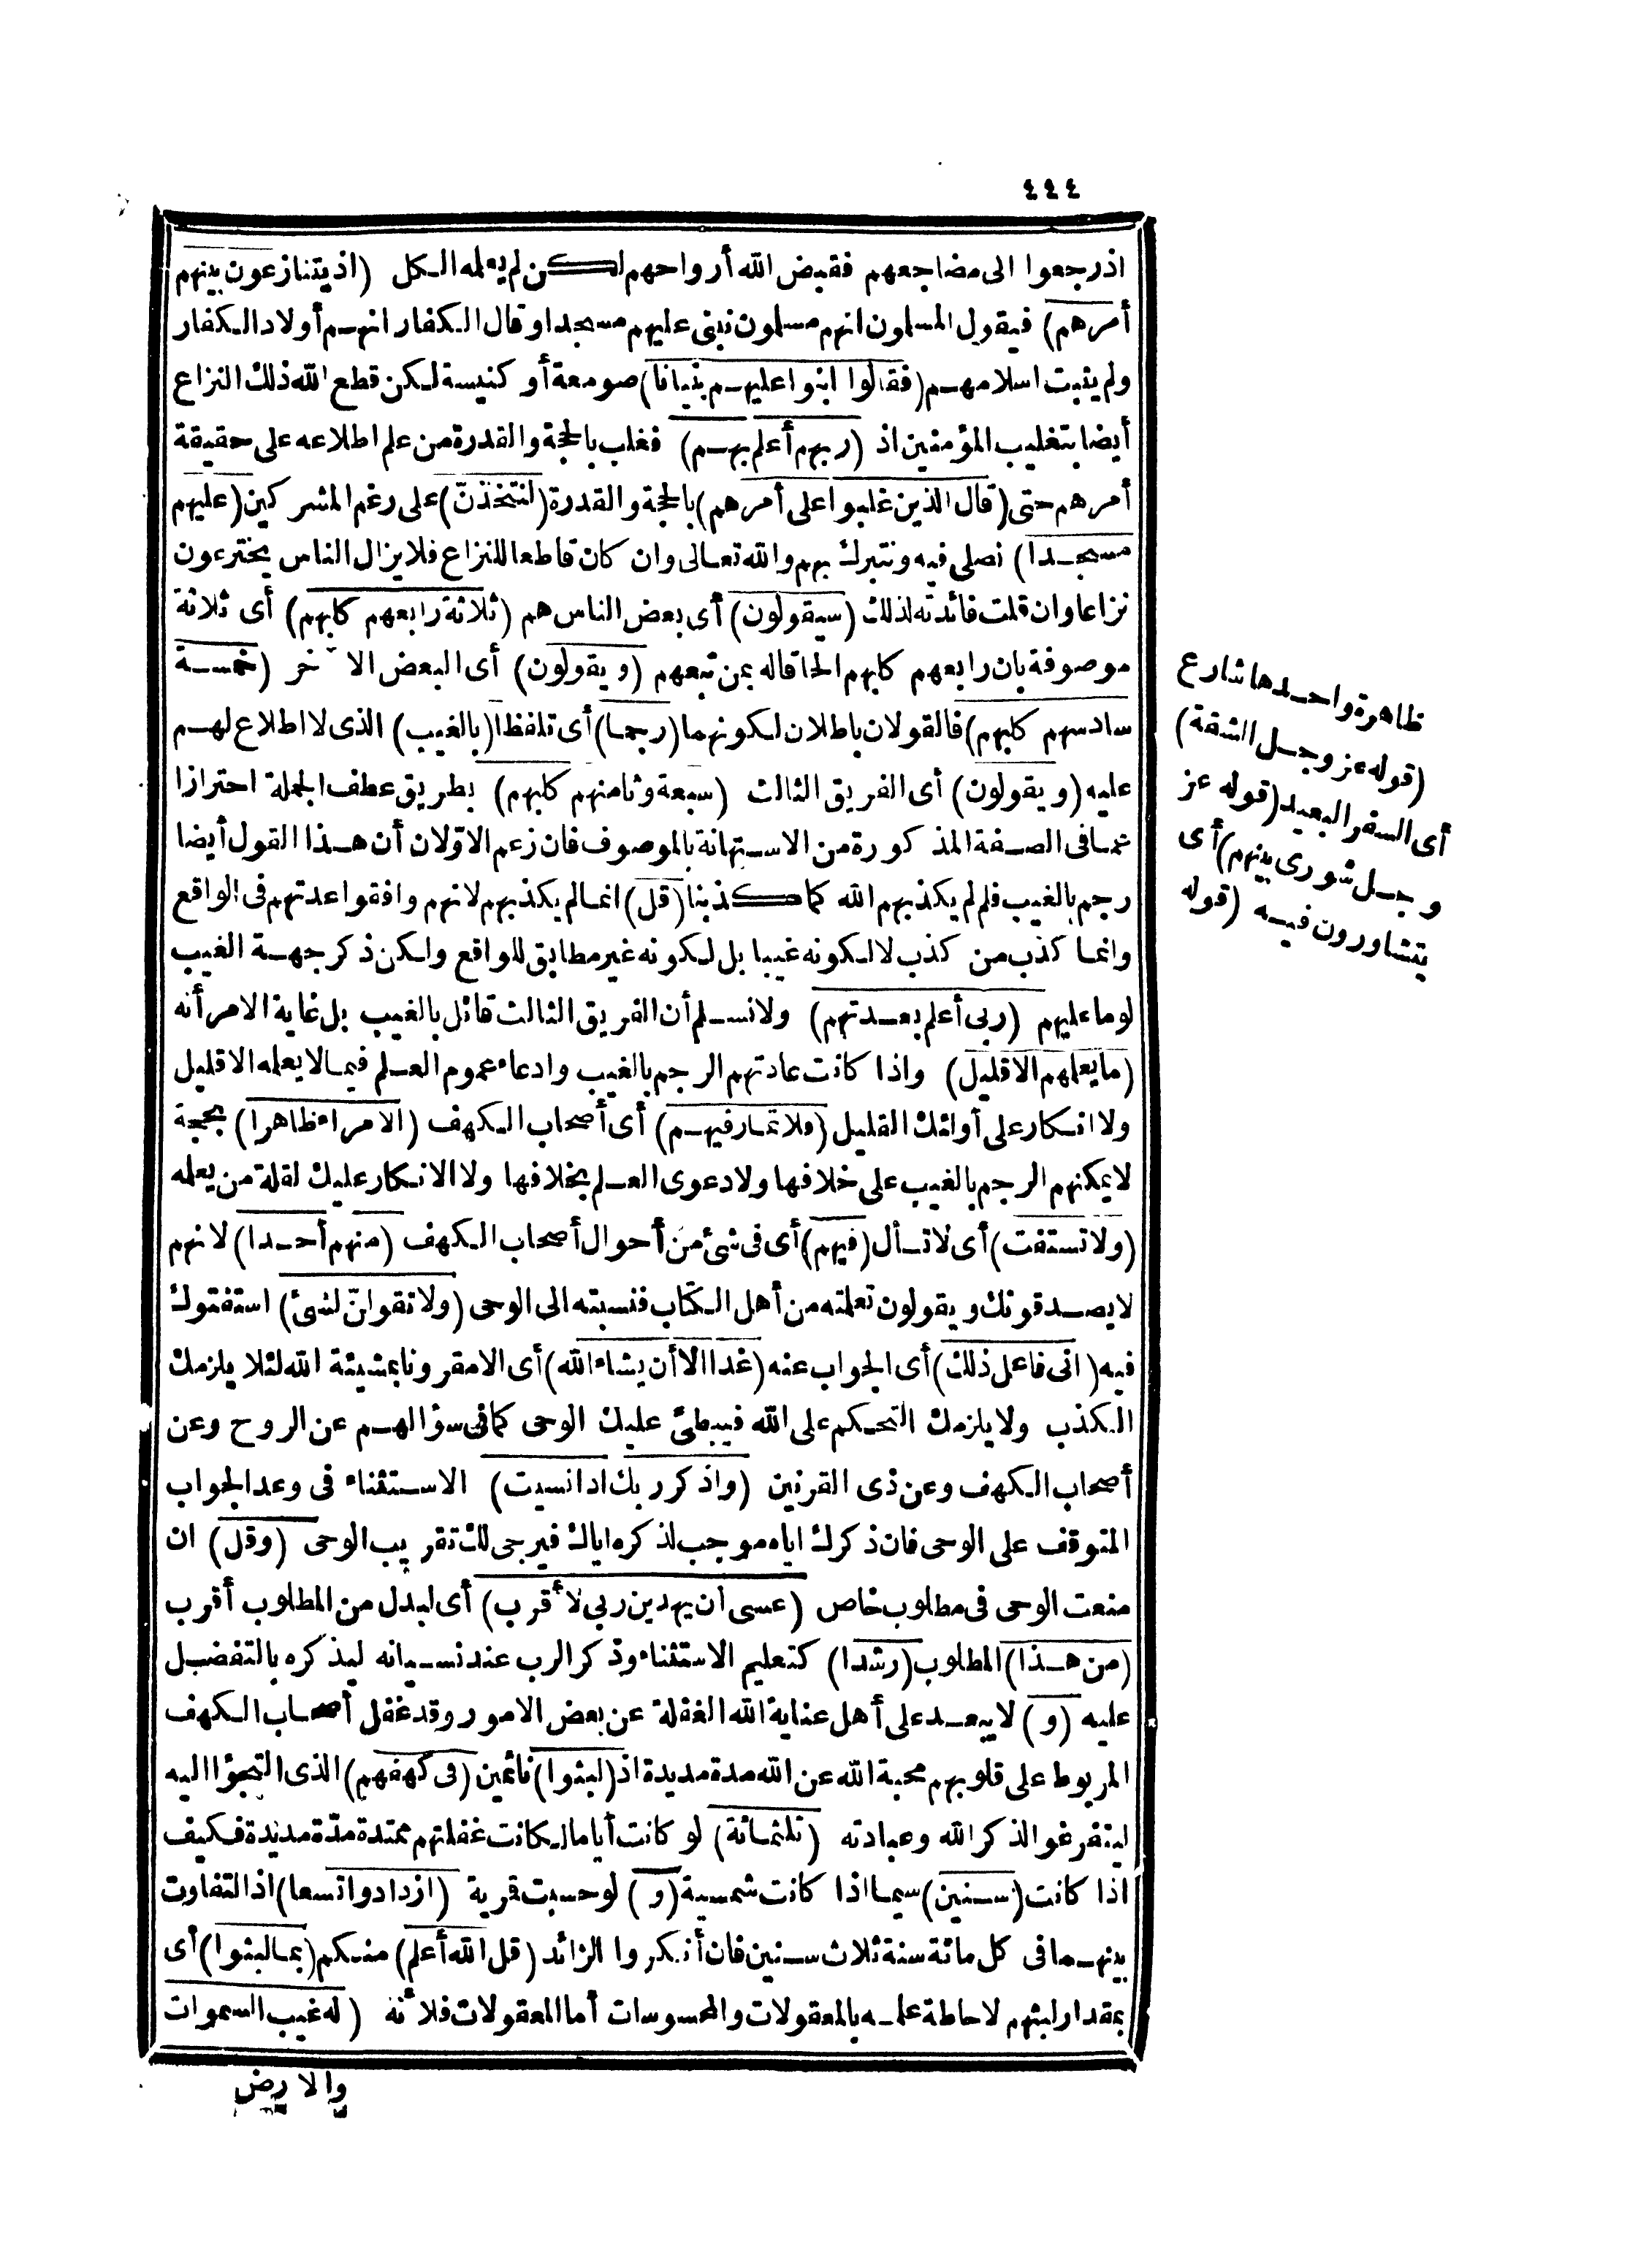 ٤٤٤
اذ رجعوا الى مضاجعهم فقبض الله أرواحهم لكن لم يعلمه الكل (اذ يتنازعون بينهم
أمرهم) فيقول المسلمون انهم مسلمون نبنى عليهم مسجدا وقال الكفار انهم أولاد الكفار
ولم يثبت اسلامهم (فقالوا ابنوا عليهم بنيانا) صومعة أو كنيسة لكن قطع الله ذلك النزاع
أيضا بتغليب المؤمنين اذ (ربهم أعلم بهم) فغلب بالحجة والقدرة من علم اطلاعه على حقيقة
أمرهم حتى (قال الذين غلبوا على أمرهم) بالحجة والقدرة (لنتخذنّ) على رغم المشركين (عليهم
مسجدا) نصلى فيه ونتبرك بهم والله تعالى وان كان قاطعا للنزاع فلا يزال الناس يخترعون
نزاعا وان قلت فائدته لذلك (سيقولون) أى بعض الناس هم (ثلاثة رابعهم كلبهم) أى ثلاثة
موصوفة بان رابعهم كلبهم الحاقاله بمن تبعهم (ويقولون) أى البعض الآخر (خمسة
سادسهم كلبهم) فالقولان باطلان لكونهما (رجما) أى تلفظا (بالغيب) الذى لا اطلاع لهم
عليه (ويقولون) أى الفريق الثالث (سبعة وثامنهم كلبهم) بطريق عطف الجملة احترازا
عما فى الصفة المذكورة من الاستهانة بالموصوف فان زعم الاوّلان أن هذا القول أيضا
رجم بالغيب فلم لم يكذبهم الله كما كذبنا (قل) انما لم يكذبهم لانهم وافقوا عدتهم فى الواقع
وانما كذب من كذب لا لكونه غيبا بل لكونه غير مطابق للواقع ولكن ذكر جهة الغيب
لوما عليهم (ربى أعلم بعدتهم) ولا نسلم أن الفريق الثالث قائل بالغيب بل غاية الامر أنه
(ما يعلمهم الا قليل) واذا كانت عادتهم الرجم بالغيب وادعاء عموم العلم فيما لا يعلمه الا قليل
ولا انكار على أولئك القليل (فلا تمار فيهم) أى أصحاب الكهف (الا مراء ظاهرا) بحجة
لا يمكنهم الرجم بالغيب على خلافها ولا دعوى العلم بخلافها ولا الانكار عليك لقلة من يعلمه
(ولا تستفت) أى لا تسأل (فيهم) أى فى شئ من أحوال أصحاب الكهف (منهم أحدا) لانهم
لا يصدقونك ويقولون تعلمته من أهل الكتاب فنسبته الى الوحى (ولا تقولنّ لشئ) استفتوك
فيه (انى فاعل ذلك) أى الجواب عنه (غدا الا أن يشاء الله) أى الا مقرونا بمشيئة الله لئلا يلزمك
الكذب ولا يلزمك التحكم على الله فيبطئ عليك الوحى كما فى سؤالهم عن الروح وعن
أصحاب الكهف وعن ذى القرنين (واذكر ربك اذا نسيت) الاستثناء فى وعد الجواب
المتوقف على الوحى فان ذكرك اياه موجب لذكره اياك فيرجى لك تقريب الوحى (وقل) ان
منعت الوحى فى مطلوب خاص (عسى أن يهدين ربى لأقرب) أى لبدل من المطلوب أقرب
(من هذا) المطلوب (رشدا) كتعليم الاستثناء وذكر الرب عند نسيانه ليذكره بالتفضل
عليه (و) لا يبعد على أهل عناية الله الغفلة عن بعض الامور وقد غفل أصحاب الكهف
المربوط على قلوبهم محبة الله عن الله مدة مديدة اذ (لبثوا) نائمين (فى كهفهم) الذى التجؤا اليه
ليتفرغوا لذكر الله وعبادته (ثلثمائة) لو كانت أياما لكانت غفلتهم ممتدة مدّة مديدة فكيف
اذا كانت (سنين) سيما اذا كانت شمسية (و) لو حسبت قمرية (ازدادوا تسعا) اذ التفاوت
بينهما فى كل مائة سنة ثلاث سنين فان أنكروا الزائد (قل الله أعلم) منكم (بما لبثوا) أى
بمقدار لبثهم لاحاطة علمه بالمعقولات والمحسوسات أما المعقولات فلأنه (له غيب السموات
والارض
ظاهرة واحدها شارع
(قوله عز وجل الشقة)
أى السفر البعيد (قوله عز
وجل شورى بينهم) أى
يتشاورون فيه (قوله